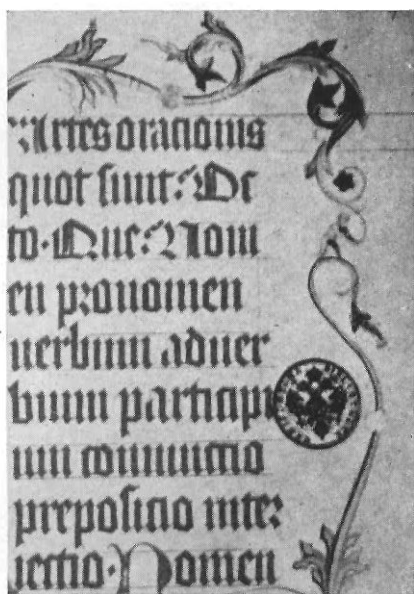 Artes oracionis
quot sunt? Oc
to. Que? Nom
en pronomen
uerbum aduer
bium participi
um coniunctio
preposicio inter
iectio. Nomen